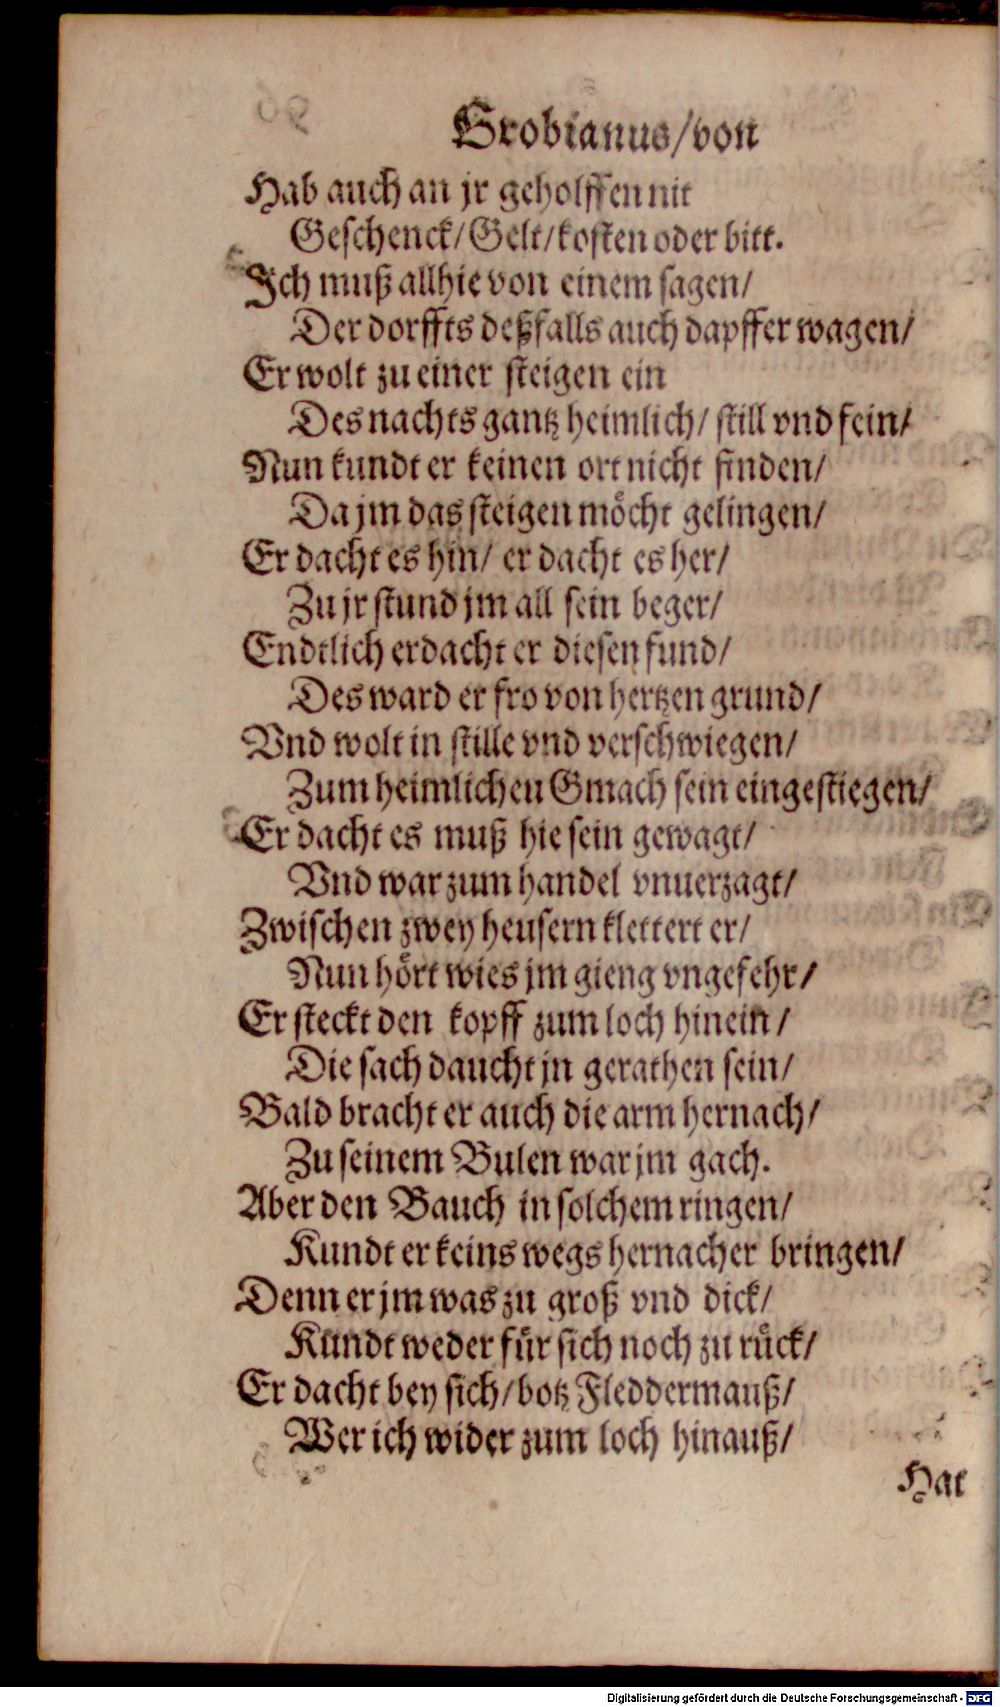 Grobianus/von
Hab auch an jr geholffen nit
Geschenck/Gelt/kosten oder bitt.
Ich muß allhie von einem sagen/
Der dorffts deßfalls auch dapffer wagen/
Er wolt zu einer steigen ein
Des nachts gantz heimlich/ still vnd fein/
Nun kundt er keinen ort nicht finden/
Da jm das steigen moͤcht gelingen/
Er dacht es hin/ er dacht es her/
Zu jr stund jm all sein beger/
Endtlich erdacht er diesen fund/
Des ward er fro von hertzen grund/
Vnd wolt in stille vnd verschwiegen/
Zum heimlichen Gmach sein eingestiegen/
Er dacht es muß hie sein gewagt/
Vnd war zum handel vnuerzagt/
Zwischen zwey heusern klettert er/
Nun hoͤrt wies jm gieng vngefehr/
Er steckt den kopff zum loch hinein/
Die sach daucht jn gerathen sein/
Bald bracht er auch die arm hernach/
Zu seinem Bulen war jm gach.
Aber den Bauch in solchem ringen/
Kundt er keins wegs hernacher bringen/
Denn er jm was zu groß vnd dick/
Kundt weder fuͤr sich noch zu ruͤck/
Er dacht bey sich/botz Fleddermauß/
Wer ich wider zum loch hinauß/
Hat
Digitalisierung gefördert durch die Deutsche Forschungsgemeinschaft - DFG